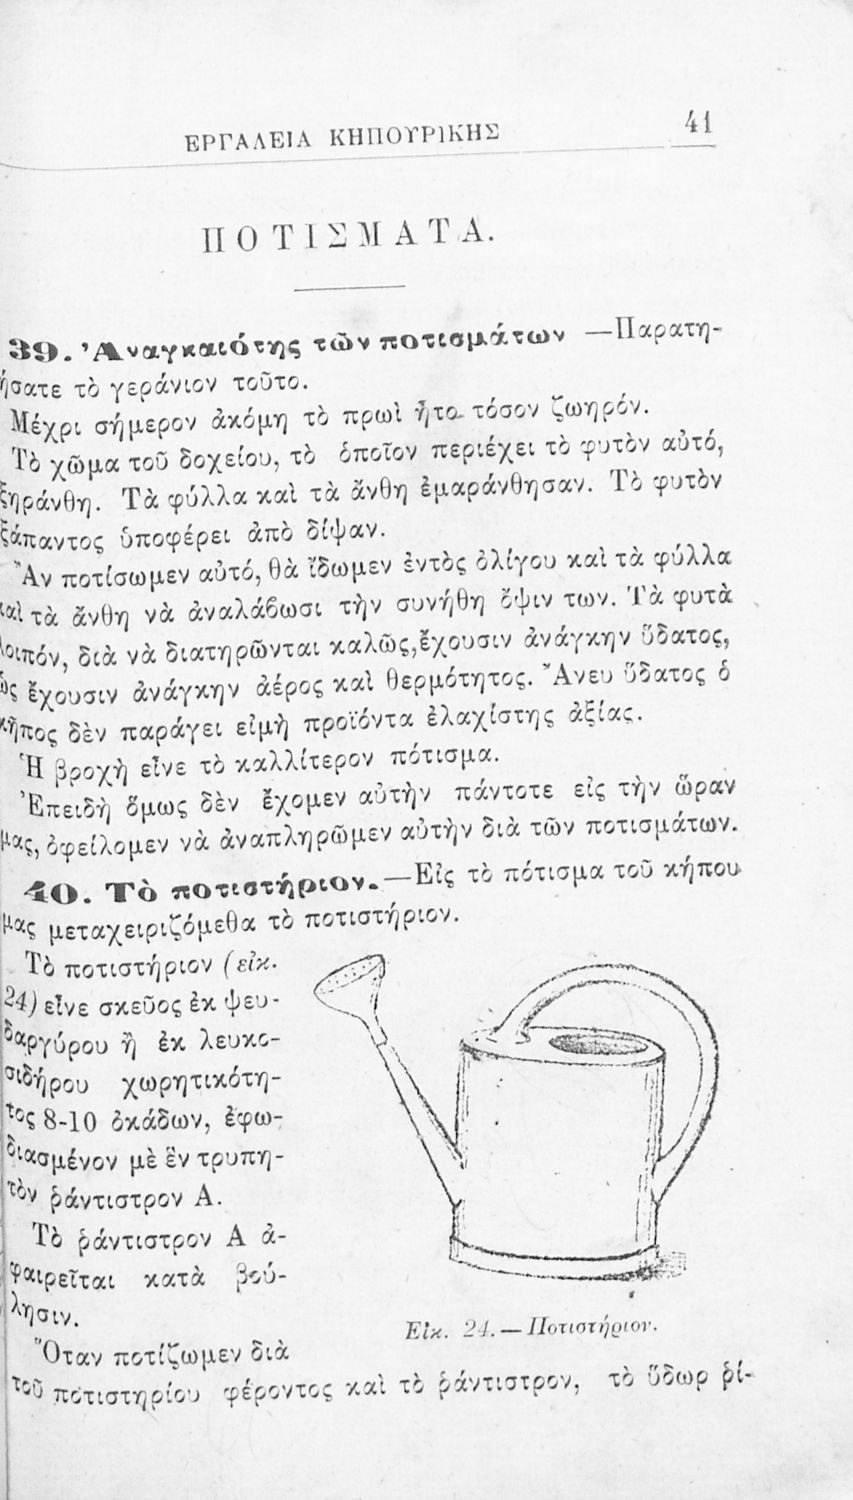 ΕΡΓΑΛΕΙΑ ΚΗΠΟΥΡΙΚΗΣ 41
ΠΟΤΙΣΜΑΤΑ.
39. Ἀναγκαιότης τῶν ποτισμάτων —Παρατη-
ήσατε τὸ γεράνιον τοῦτο.
Μέχρι σήμερον ἀκόμη τὸ πρωὶ ἦτο τόσον ζωηρόν.
Τὸ χῶμα τοῦ δοχείου, τὸ ὁποῖον περιέχει τὸ φυτὸν αὐτό,
ξηράνθη. Τὰ φύλλα καὶ τὰ ἄνθη ἐμαράνθησαν. Τὸ φυτὸν
ξάπαντος ὑποφέρει ἀπὸ δίψαν.
Ἂν ποτίσωμεν αὐτό, θὰ ἴδωμεν ἐντὸς ὀλίγου καὶ τὰ φύλλα
καὶ τὰ ἄνθη νὰ ἀναλάβωσι τὴν συνήθη ὄψιν των. Τὰ φυτὰ
λοιπόν, διὰ νὰ διατηρῶνται καλῶς, ἔχουσιν ἀνάγκην ὕδατος,
ὡς ἔχουσιν ἀνάγκην ἀέρος καὶ θερμότητος. Ἄνευ ὕδατος ὁ
κῆπος δὲν παράγει εἰμὴ προϊόντα ἐλαχίστης ἀξίας.
Ἡ βροχὴ εἶνε τὸ καλλίτερον πότισμα.
Ἐπειδὴ ὅμως δὲν ἔχομεν αὐτὴν πάντοτε εἰς τὴν ὥραν
μας, ὀφείλομεν νὰ ἀναπληρῶμεν αὐτὴν διὰ τῶν ποτισμάτων.
40. Τὸ ποτιστήριον.—Εἰς τὸ πότισμα τοῦ κήπου
μας μεταχειριζόμεθα τὸ ποτιστήριον.
Τὸ ποτιστήριον (εἰκ.
24) εἶνε σκεῦος ἐκ ψευ-
δαργύρου ἢ ἐκ λευκο-
σιδήρου χωρητικότη-
τος 8-10 ὀκάδων, ἐφω-
διασμένον μὲ ἓν τρυπη-
τὸν ῥάντιστρον Α.
Τὸ ῥάντιστρον Α ἀ-
φαιρεῖται κατὰ βού-
λησιν.
Ὅταν ποτίζωμεν διὰ
τοῦ ποτιστηρίου φέροντος καὶ τὸ ῥάντιστρον, τὸ ὕδωρ ῥί-
Εἰκ. 24. — Ποτιστήριον.